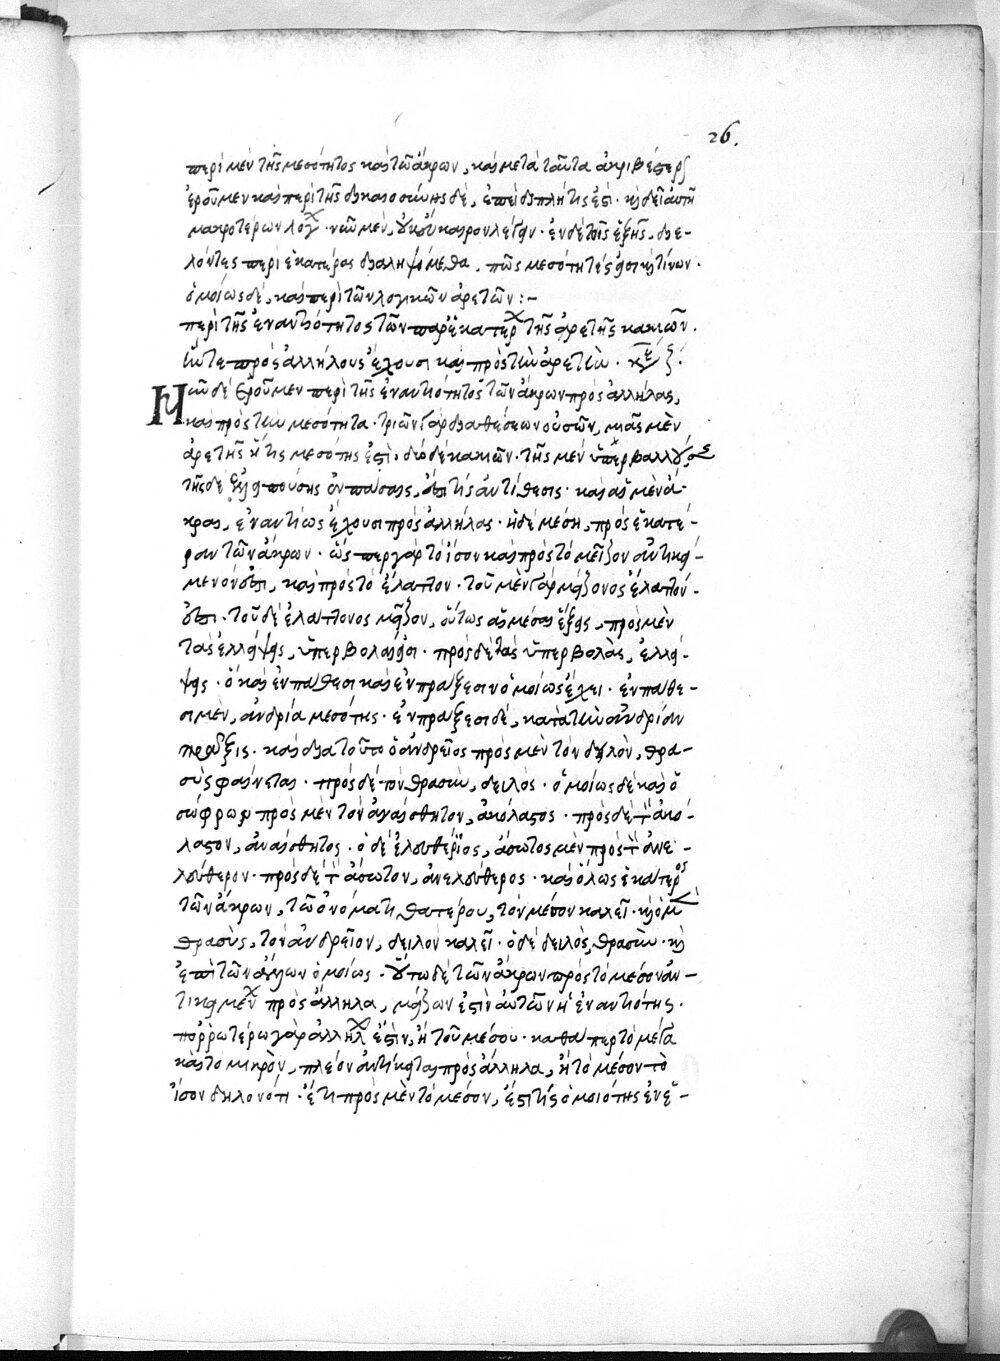 26.
περὶ μὲν τῆς μεσότητος καὶ τῶν ἄκρων, καὶ μετὰ ταῦτα ἀκριβέστερον
ἐροῦμεν καὶ περὶ τῆς δικαιοσύνης δὲ, ἐπεὶ διπλή τίς ἐστι· καὶ δεῖ αὐτῇ
μακροτέρων λόγων· νῦν μὲν, οὐκ οὐ καιρὸν λέγειν· ἐν δὲ τοῖς ἑξῆς, διε-
λόντες περὶ ἑκατέρας διαληψόμεθα, πῶς μεσότητές εἰσι καὶ τίνων·
ὁμοίως δὲ, καὶ περὶ τῶν λογικῶν ἀρετῶν :-
περὶ τῆς ἐναντιότητος τῶν παρ' ἑκάτερα τῆς ἀρετῆς κακιῶν.
ἥν τε πρὸς ἀλλήλους ἔχουσι καὶ πρὸς τὴν ἀρετήν.
Νῦν δὲ ἐροῦμεν περὶ τῆς ἐναντιότητος τῶν ἄκρων πρὸς ἀλλήλας,
καὶ πρὸς τὴν μεσότητα· τριῶν γὰρ διαθέσεων οὐσῶν, μιᾶς μὲν
ἀρετῆς ἥτις μεσότης ἐστὶ, δύο δὲ κακιῶν· τῆς μὲν ὑπερβαλλούσης
τῆς δὲ ἐλλειπούσης ἐν πάσαις, ἐστί τις ἀντίθεσις· καὶ αἱ μὲν ἄ-
κραι, ἐναντίως ἔχουσι πρὸς ἀλλήλας· ἡ δὲ μέση, πρὸς ἑκατέ-
ραν τῶν ἄκρων· ὥσπερ γὰρ τὸ ἴσον καὶ πρὸς τὸ μεῖζον ἀντικεί-
μενόν ἐστι, καὶ πρὸς τὸ ἔλαττον· τοῦ μὲν γὰρ μείζονος ἔλαττόν
ἐστι· τοῦ δὲ ἐλάττονος μεῖζον, οὕτως αἱ μέσαι ἕξεις, πρὸς μὲν
τὰς ἐλλείψεις, ὑπερβολαί εἰσι· πρὸς δὲ τὰς ὑπερβολὰς, ἐλλεί-
ψεις· ὃ καὶ ἐν πάθεσι καὶ ἐν πράξεσιν ὁμοίως ἔχει· ἐν πάθε-
σι μὲν, ἀνδρία μεσότης· ἐν πράξεσι δὲ, κατὰ τὴν ἀνδρίαν
πρᾶξις· καὶ διὰ τοῦτο ὁ ἀνδρεῖος πρὸς μὲν τὸν δειλὸν, θρα-
σὺς φαίνεται· πρὸς δὲ τὸν θρασὺν, δειλός· ὁμοίως δὲ καὶ ὁ
σώφρων πρὸς μὲν τὸν ἀναίσθητον, ἀκόλαστος· πρὸς δὲ τὸν ἀκό-
λαστον, ἀναίσθητος· ὁ δὲ ἐλευθέριος, ἄσωτος μὲν πρὸς τὸν ἀνε-
λεύθερον· πρὸς δὲ τὸν ἄσωτον, ἀνελεύθερος· καὶ ὅλως ἑκάτερος
τῶν ἄκρων, τῷ ὀνόματι θατέρου, τὸν μέσον καλεῖ· καὶ ὁ μὲν
θρασὺς, τὸν ἀνδρεῖον, δειλὸν καλεῖ· ὁ δὲ δειλὸς, θρασὺν· καὶ
ἐπὶ τῶν ἄλλων ὁμοίως· οὕτω δὲ τῶν ἄκρων πρὸς τὸ μέσον ἀν-
τικειμένων πρὸς ἄλληλα, μείζων ἐστὶν αὐτῶν ἡ ἐναντιότης·
πορρωτέρω γὰρ ἀλλήλων ἐστὶν, ἢ τοῦ μέσου· καθάπερ τὸ μέγα
καὶ τὸ μικρὸν, πλέον ἀντίκειται πρὸς ἄλληλα, ἢ τὸ μέσον τὸ
ἴσον δηλονότι· ἔτι πρὸς μὲν τὸ μέσον, ἔστί τις ὁμοιότης ἐνε-